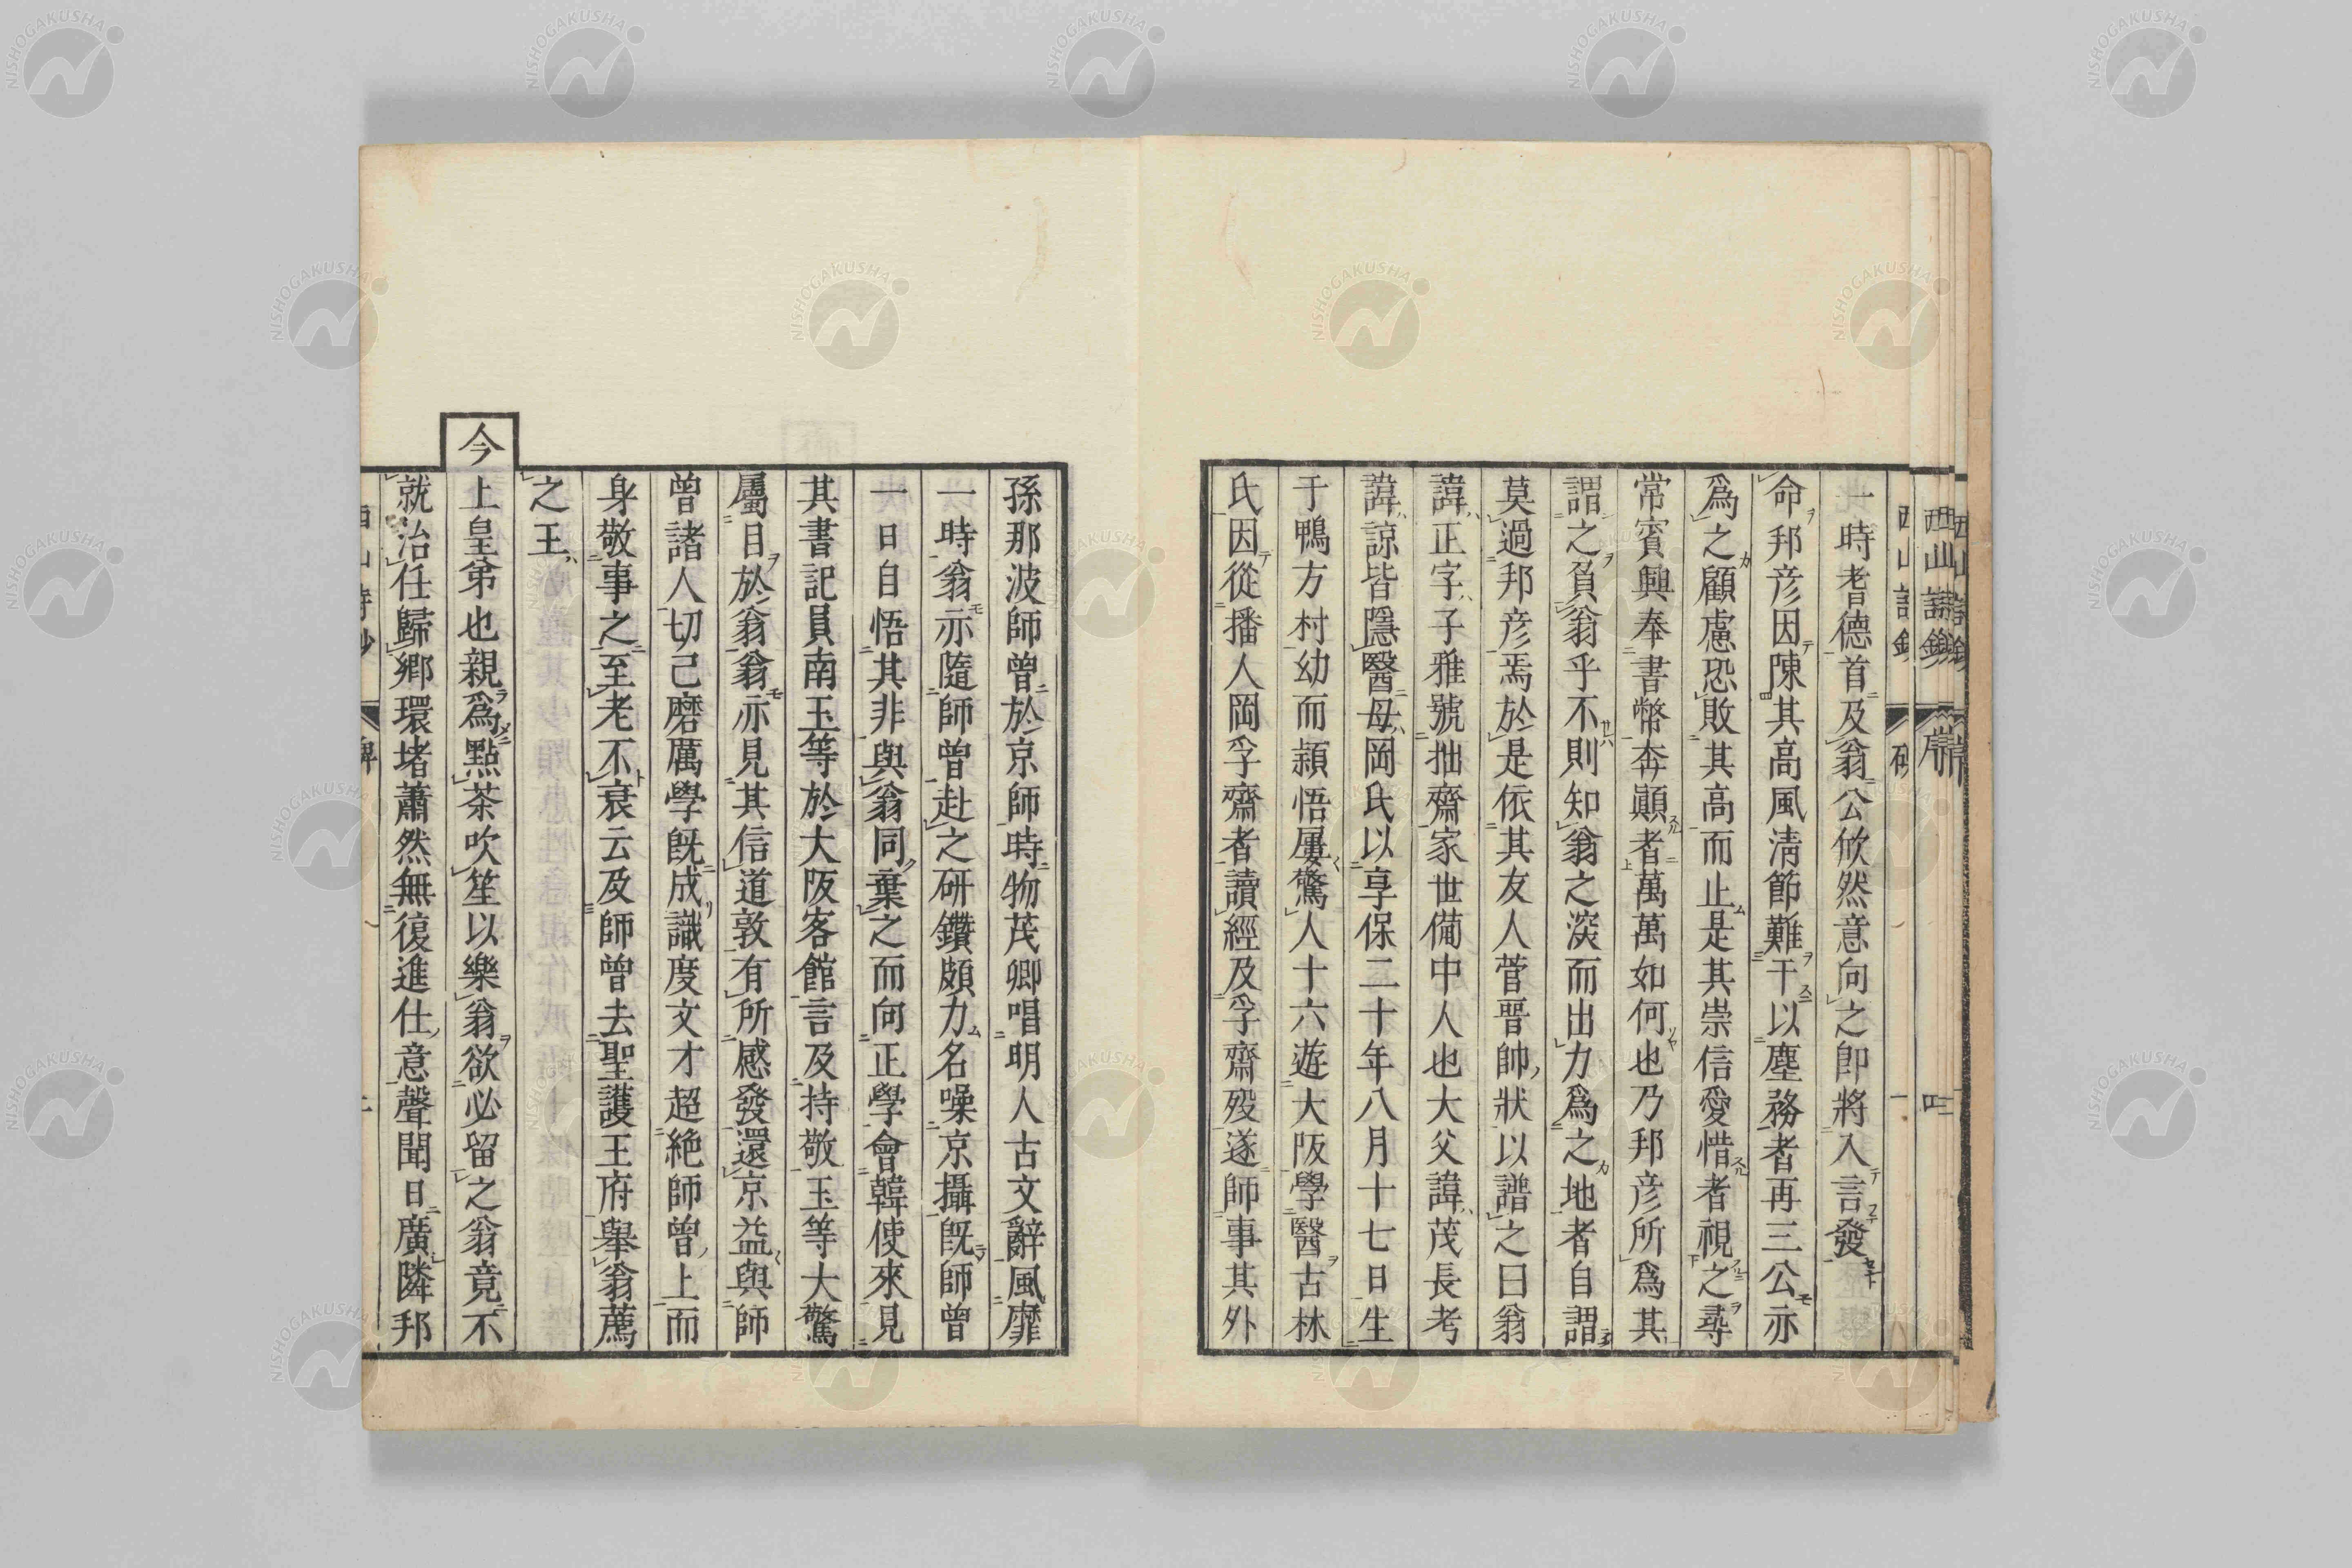 一時耆德首及翁公攸然意向之即將入言發
命邦彦因陳其高風清節難干以塵務者再三公亦
爲之顧慮恐敗其高而止是其崇信愛惜者視之尋
常賓興奉書幣奔顚者萬萬如何也乃邦彦所爲其
謂之負翁乎不則知翁之深而出力爲之地者自謂
莫過邦彦焉於是依其友人菅晋帥狀以譜之曰翁
諱正字子雅號拙齋家世備中人也大父諱茂長考
諱諒皆隱醫母岡氏以享保二十年八月十七日生
于鴨方村幼而穎悟屢驚人十六遊大阪學醫古林
氏因從播人岡孚齋者讀經及孚齋歿遂師事其外
孫那波師曾於京師時物茂卿唱明人古文辭風靡
一時翁亦隨師曾赴之研鑽頗力名噪京攝既師曾
一日自悟其非與翁同棄之而向正學會韓使來見
其書記員南玉等於大阪客館言及持敬玉等大驚
屬目於翁翁亦見其信道敦有所感發還京益與師
曾諸人切己磨厲學既成識度文才超絶師曾上而
身敬事之至老不衰云及師曾去聖護王府舉翁薦
之王
今上皇弟也親爲點茶吹笙以樂翁欲必留之翁竟不
就治任歸鄉環堵蕭然無復進仕意聲聞日廣隣邦